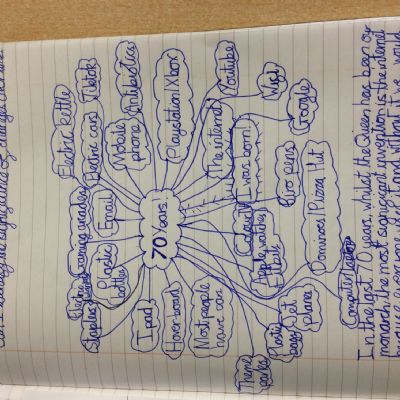 Electric kettle
Electric cars
Tiktok
Mobile phone
Antibiotics
Playstation/Xbox
Youtube
The internet
Wifi
Google
I was born!
Biro pens
Gaming consoles
Email
Plastic bottles
Staples
Ipad
Hover board
Most people have cars
70 Years.
Colour tv
Apple watches
Dominos/Pizza Hut
Jet planes
Plastic bags
Theme parks
Computer
In the last 70 years, whilst the Queen has been our
monarch, the most significant invention is the internet
because everyone uses it and without it we would